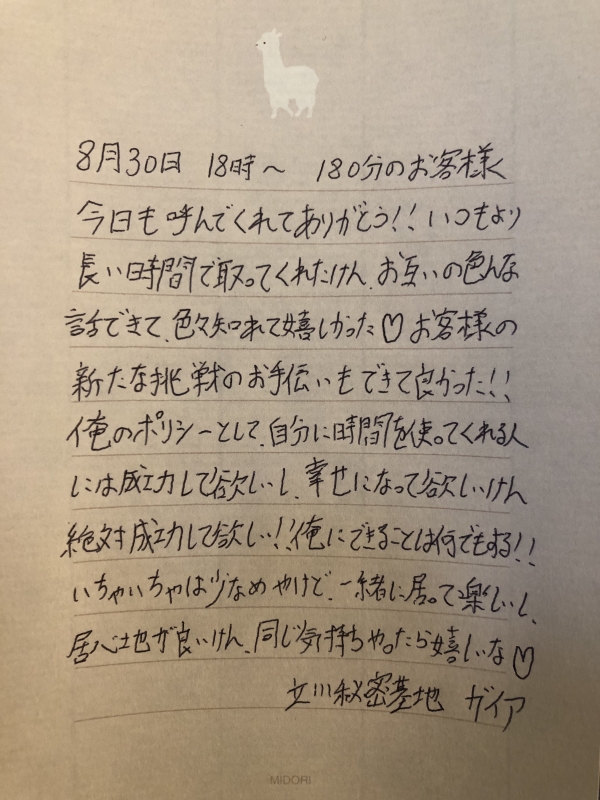 8月30日 18時～ 180分のお客様
今日も呼んでくれてありがとう!! いつもより
長い時間で取ってくれたけん、お互いの色んな
話できて、色々知れて嬉しかった♡ お客様の
新たな挑戦のお手伝いもできて良かった!!
俺のポリシーとして、自分に時間を使ってくれる人
には成功して欲しいし、幸せになって欲しいけん
絶対成功して欲しい!! 俺にできることは何でもする!!
いちゃいちゃは少なめやけど、一緒に居って楽しいし、
居心地が良いけん、同じ気持ちやったら嬉しいな♡
立川秘密基地 ガイア
MIDORI